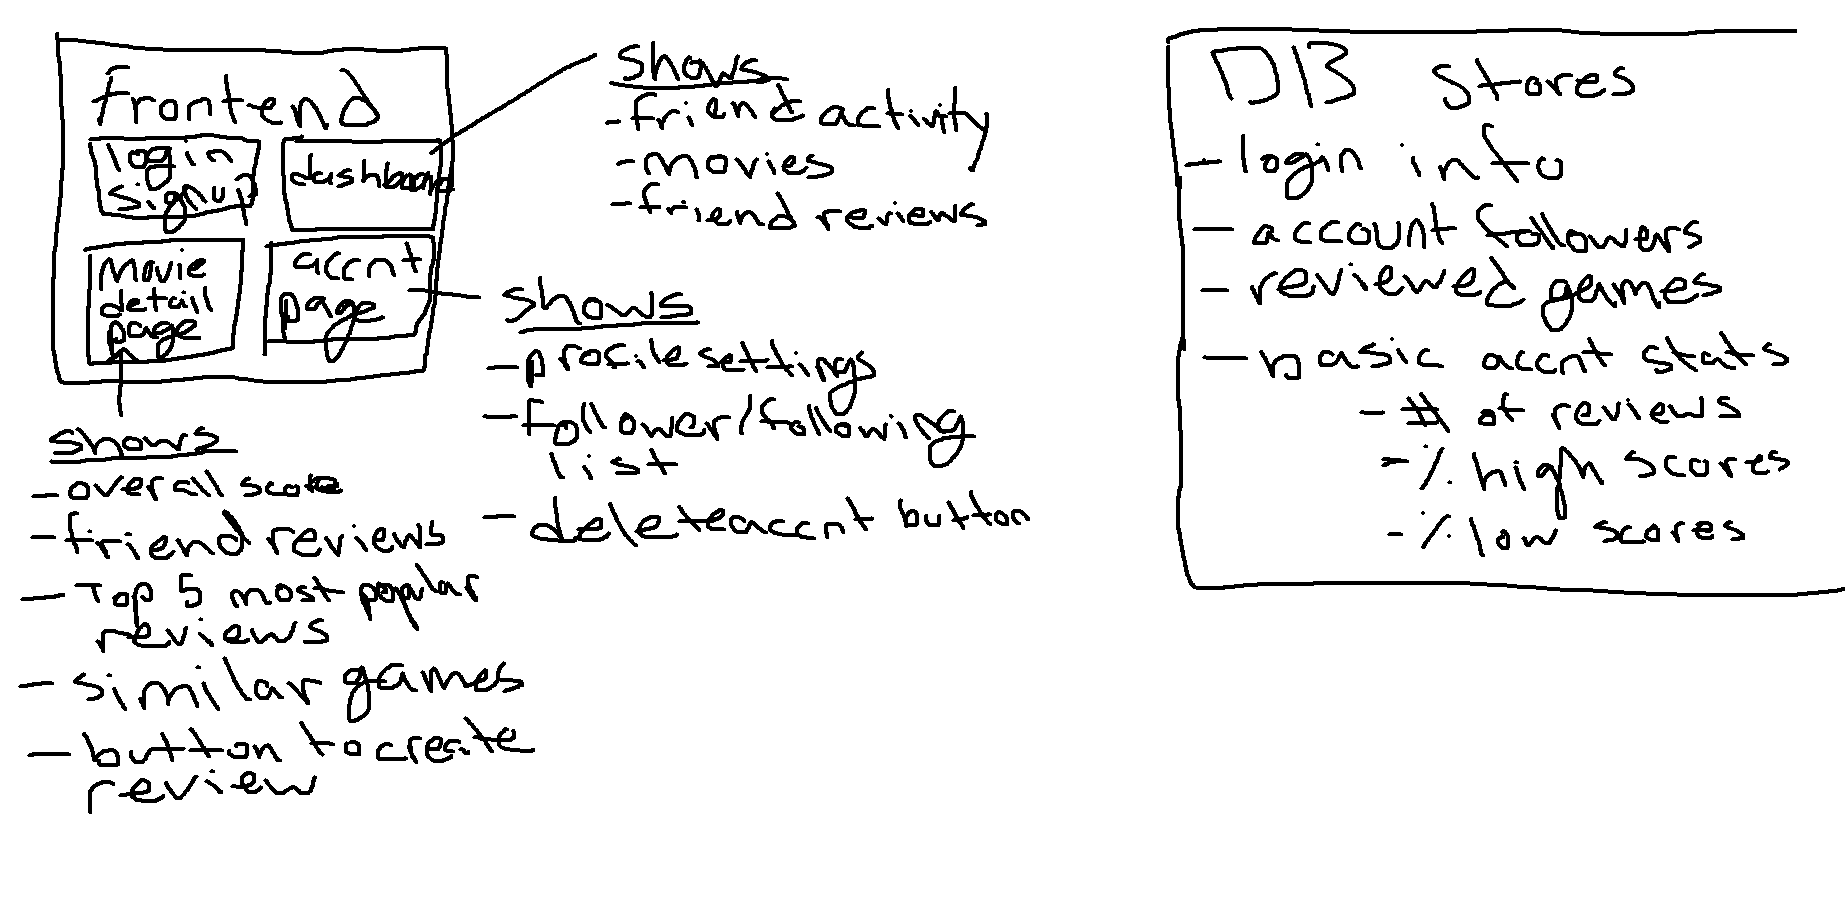 frontend
login
signup
dashboard
movie
detail
page
accnt
page
shows
- friend activity
- movies
- friend reviews
shows
- profile settings
- follower/following
list
- delete accnt button
shows
- overall score
- friend reviews
- Top 5 most popular
reviews
- similar games
- button to create
review
DB stores
- login info
- account followers
- reviewed games
- basic accnt stats
- # of reviews
- % high scores
- % low scores